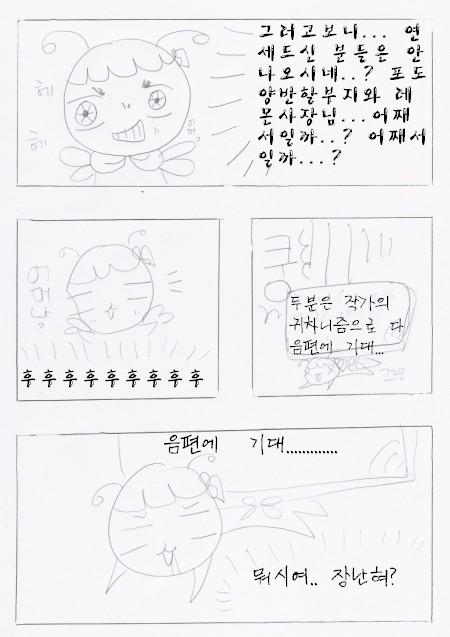 그러고보니... 연
세드신 분들은 안
나오시네..? 포도
양반할부지와 레
몬사장님...어째
서일까..? 어째서
일까...?
헤
헤
후후후후후후후후후
두분은 작가의
귀차니즘으로 다
음편에 기대...
음편에 기대.............
뭐시여.. 장난혀?